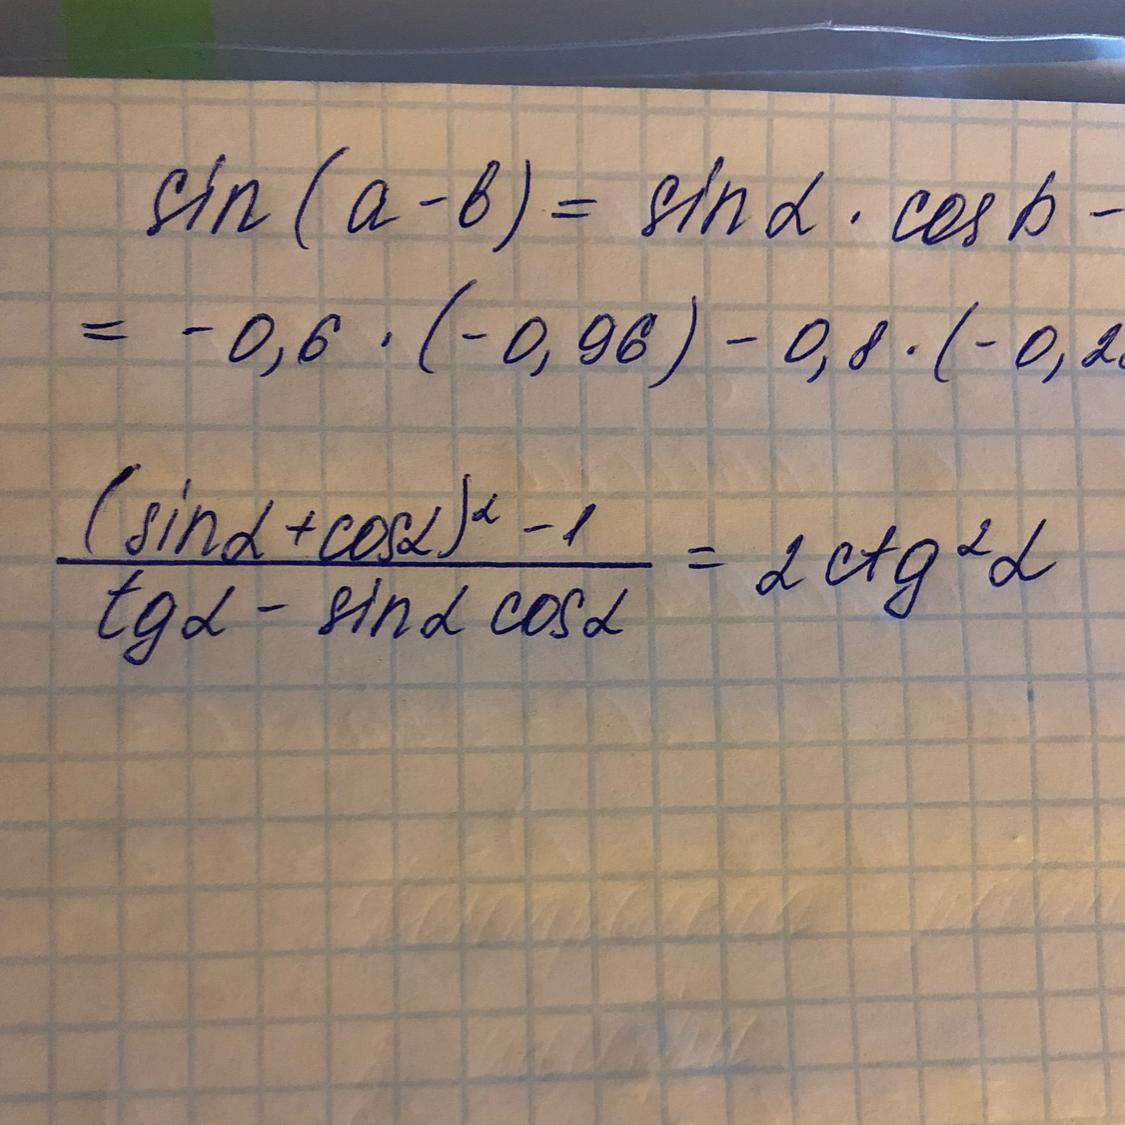 sin (a - b) = sin α · cos b -
= - 0,6 · (- 0,96) - 0,8 · (- 0,2
(sin α + cos α)² - 1
tg α - sin α cos α
= 2 ctg² α